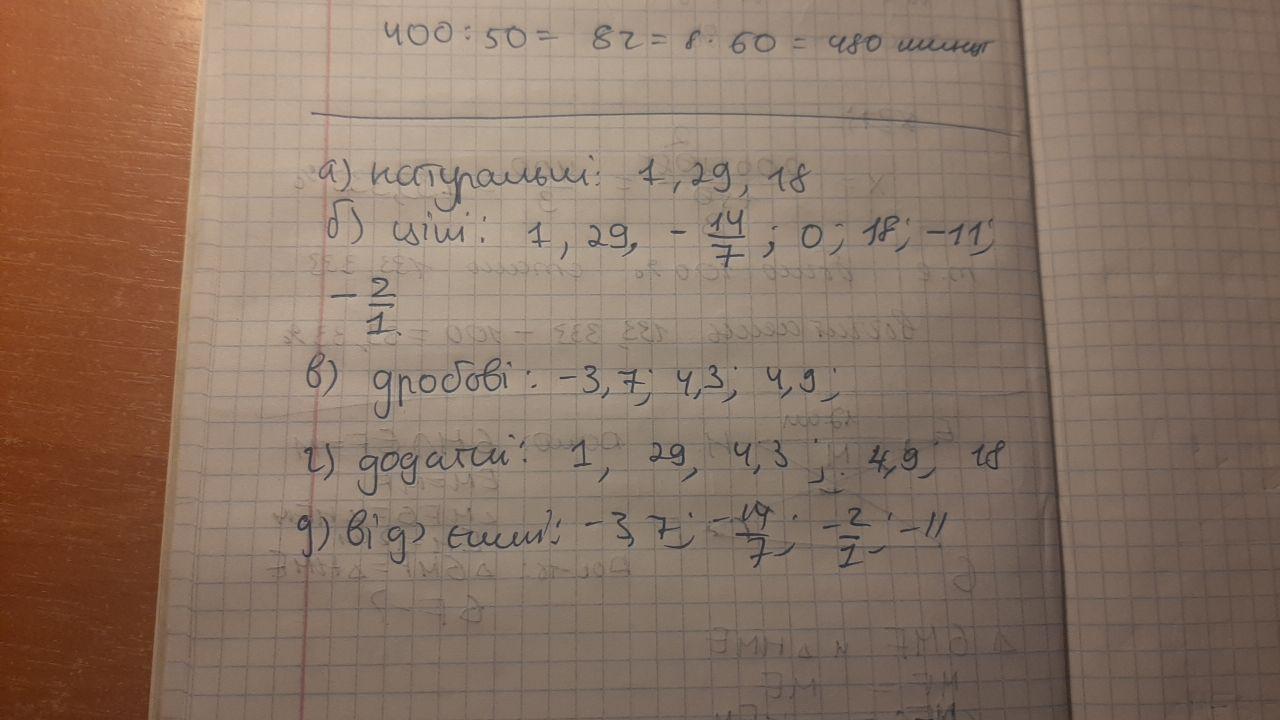 400 : 50 = 8г = 8 · 60 = 480 минут
а) натуральні: 1, 29, 18
б) цілі: 1, 29, - 14/7; 0; 18; -11;
- 2/1
в) дробові: -3,7; 4,3; 4,9;
г) додатні: 1, 29, 4,3; 4,9; 18
д) від'ємні: -3,7; -14/7; -2/1; -11